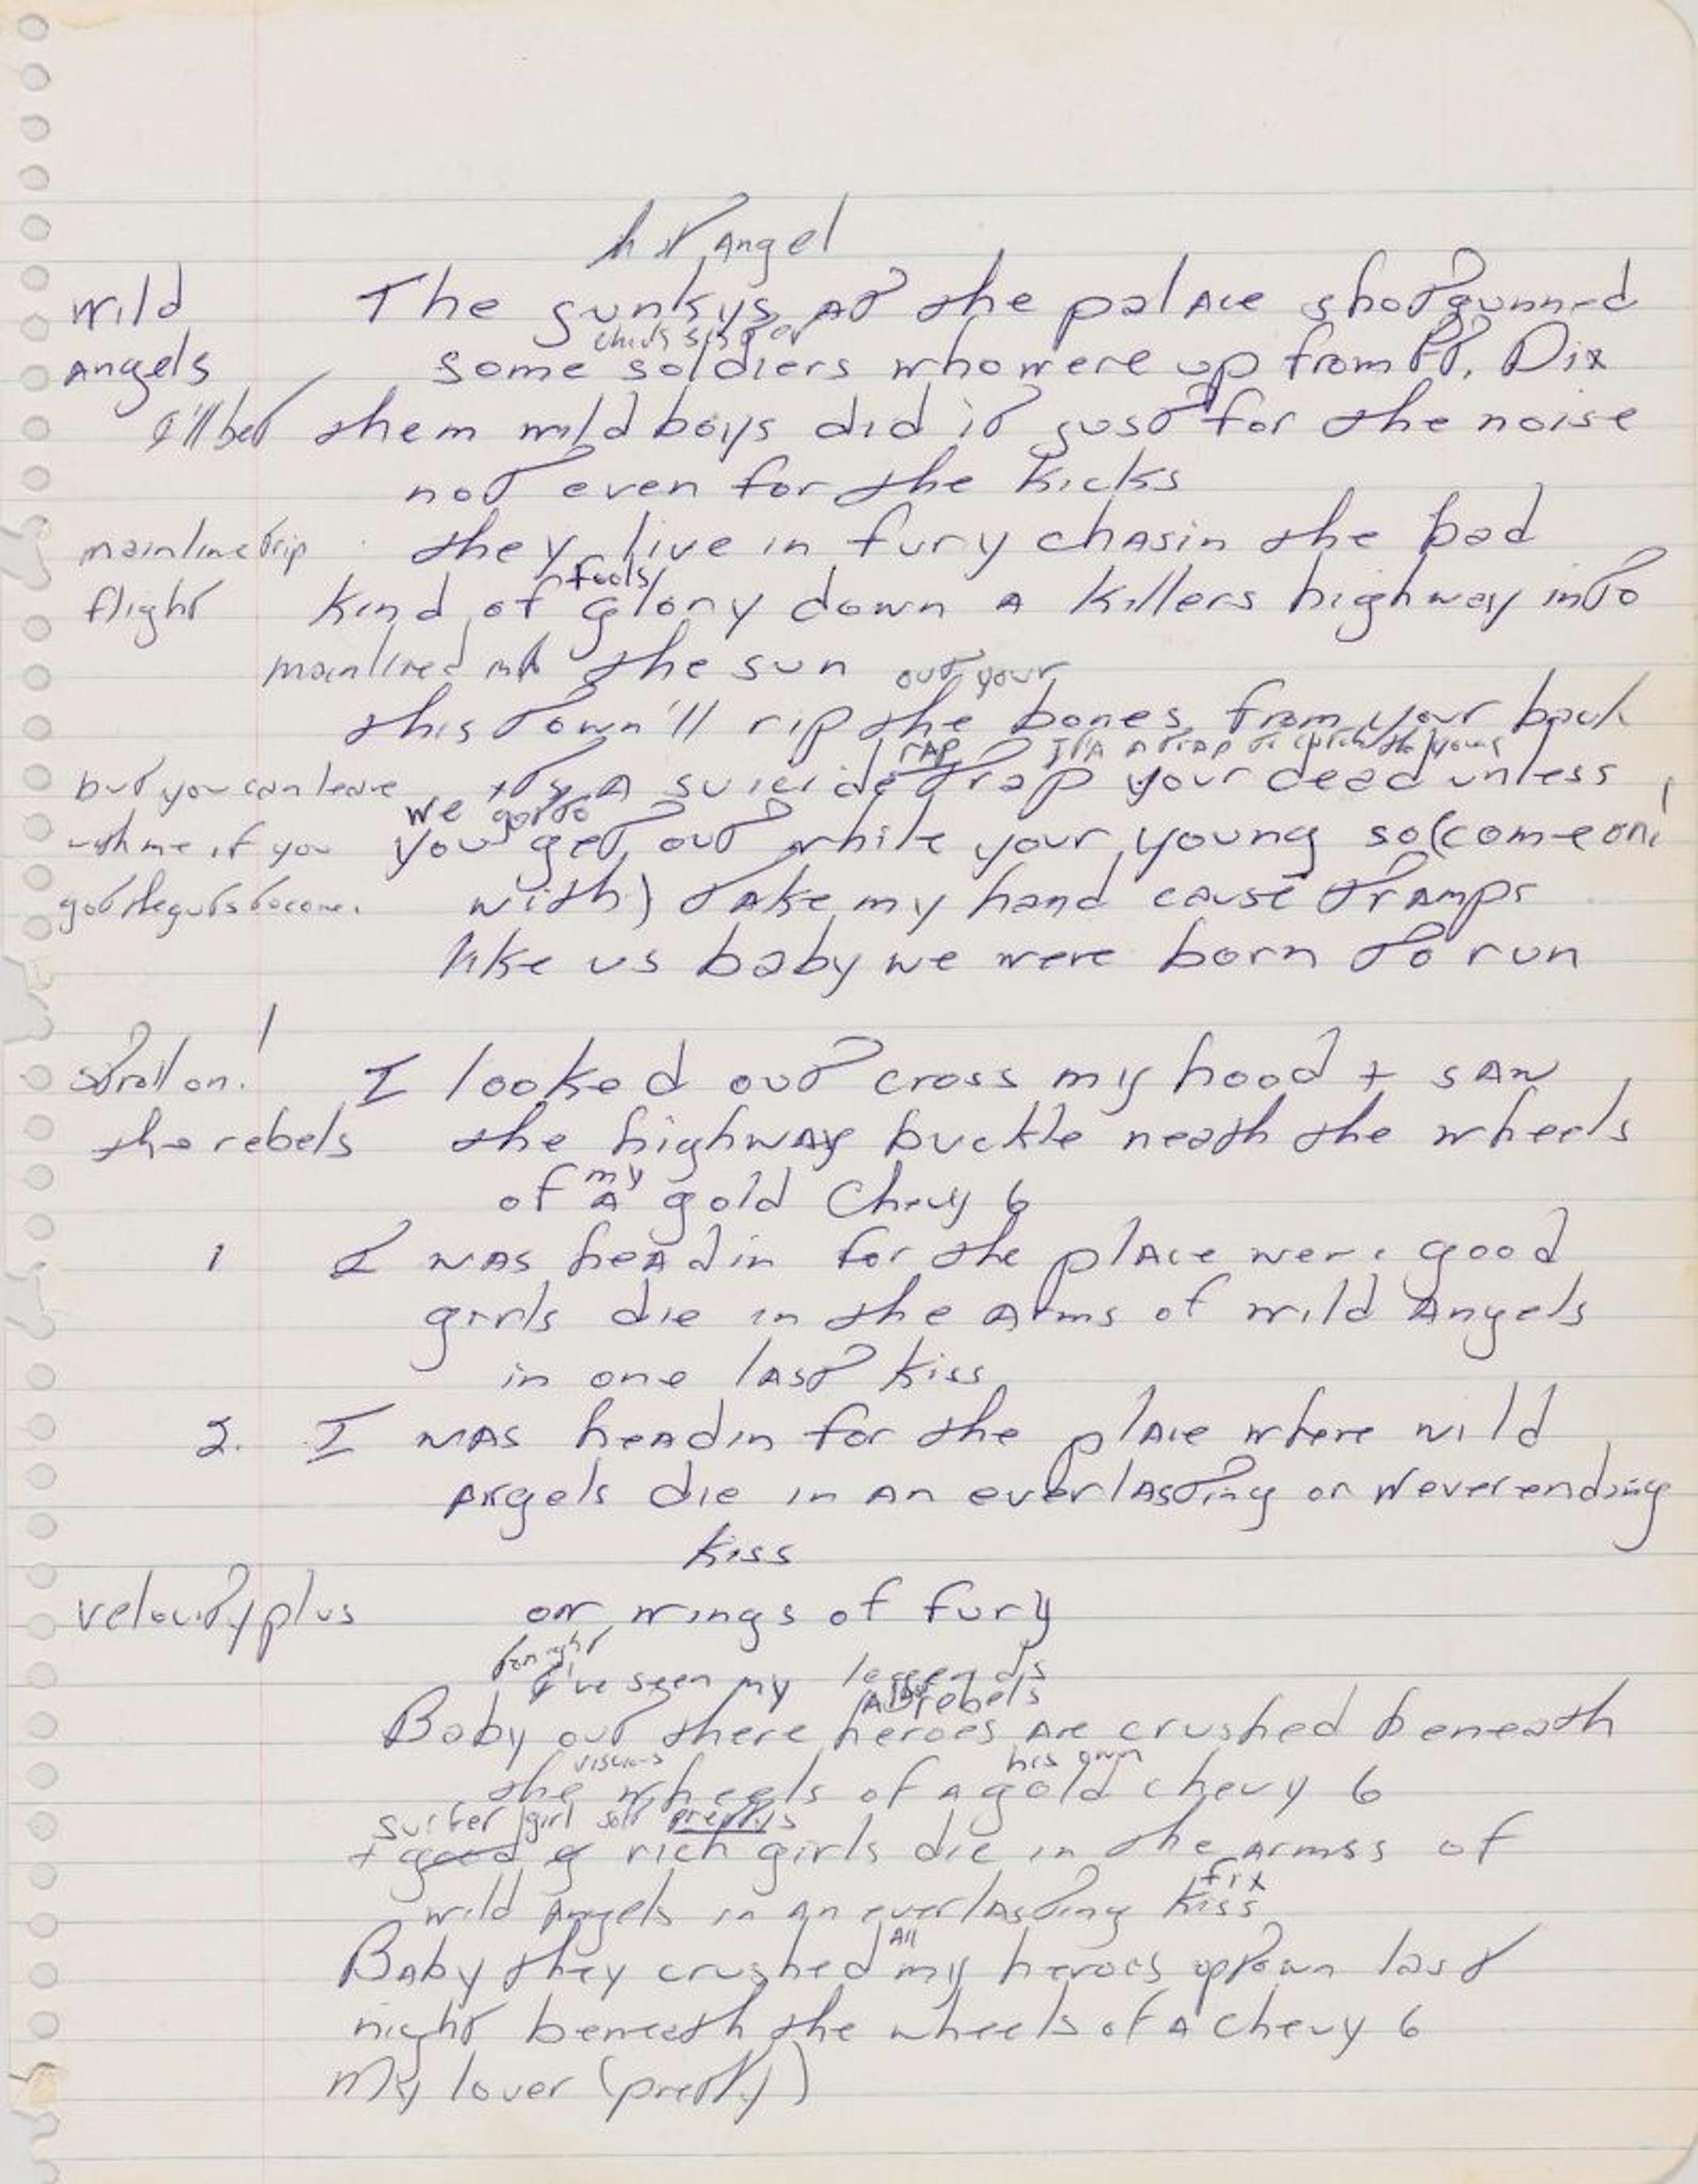 Angel
Wild The junkys at the palace shotgunned
Angels some soldiers who were up from Ft. Dix
I'll bet them wild boys did it just for the noise
not even for the kicks
mainline trip they live in fury chasin the bad
fools
flight kind of glory down a killers highway into
mainlined into the sun out your
this town'll rip the bones from your back
rap its a trap to catch the young
but you can leave its a suicide trap your dead unless
we got to
with me if you you get out while your young so (come on
got the guts to come. with) take my hand cause tramps
like us baby we were born to run
stroll on! I looked out cross my hood + saw
the rebels the highway buckle neath the wheels
my
of a gold Chevy 6
1 I was headin for the place were good
girls die in the arms of wild Angels
in one last kiss
2. I was headin for the place where wild
Angels die in an everlasting or Neverending
kiss
velocity plus on wings of fury
tonight
I've seen my legends
rebels
Baby out there heroes are crushed beneath
his own
the wheels of a gold chevy 6
surfer girl
+ good g rich girls die in the armss of
fix
wild Angels in an everlasting kiss
All
Baby they crushed my heroes uptown last
night beneath the wheels of a chevy 6
My lover (pretty)